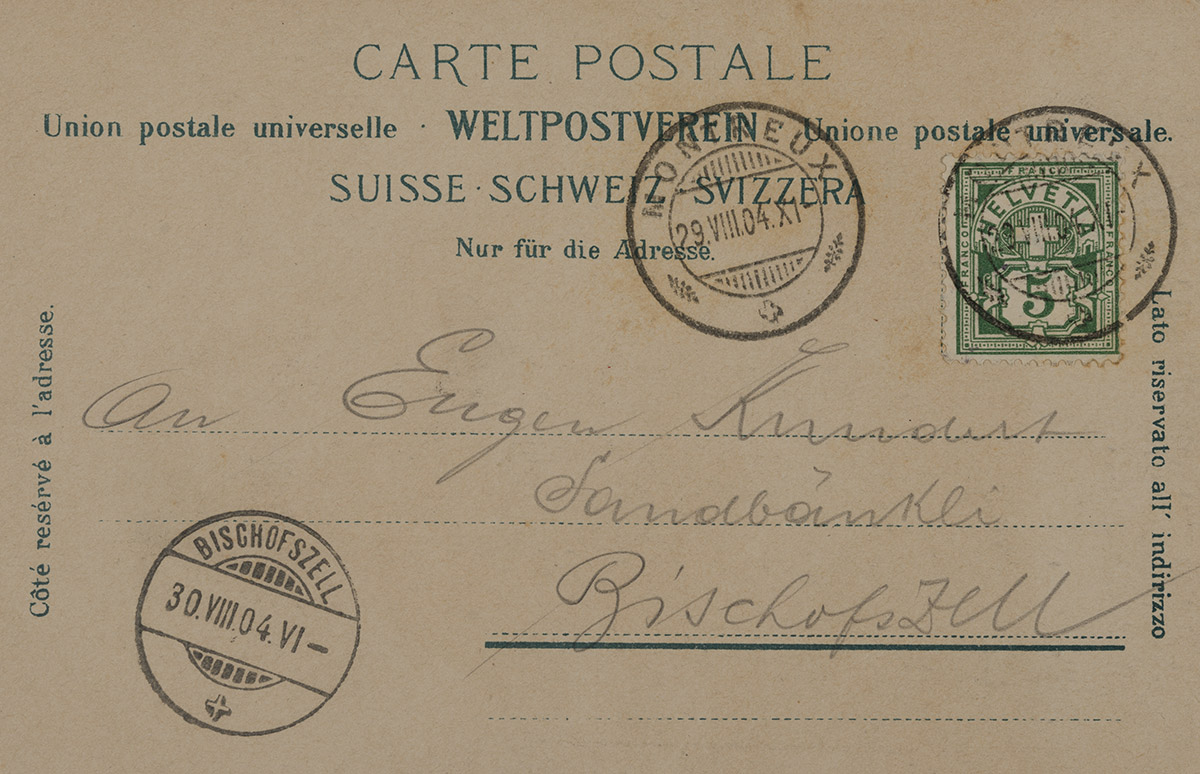 CARTE POSTALE
Union postale universelle · WELTPOSTVEREIN Unione postale universale.
SUISSE · SCHWEIZ · SVIZZERA
Nur für die Adresse.
MONTREUX
29.VIII.04.XI-
FRANCO
FRANCO
FRANCO
HELVETIA
5
Côté resérvé à l'adresse.
Lato riservato all' indirizzo
An Eugen Kundert
Sandbänkli
Bischofszell
BISCHOFSZELL
30.VIII.04.VI-